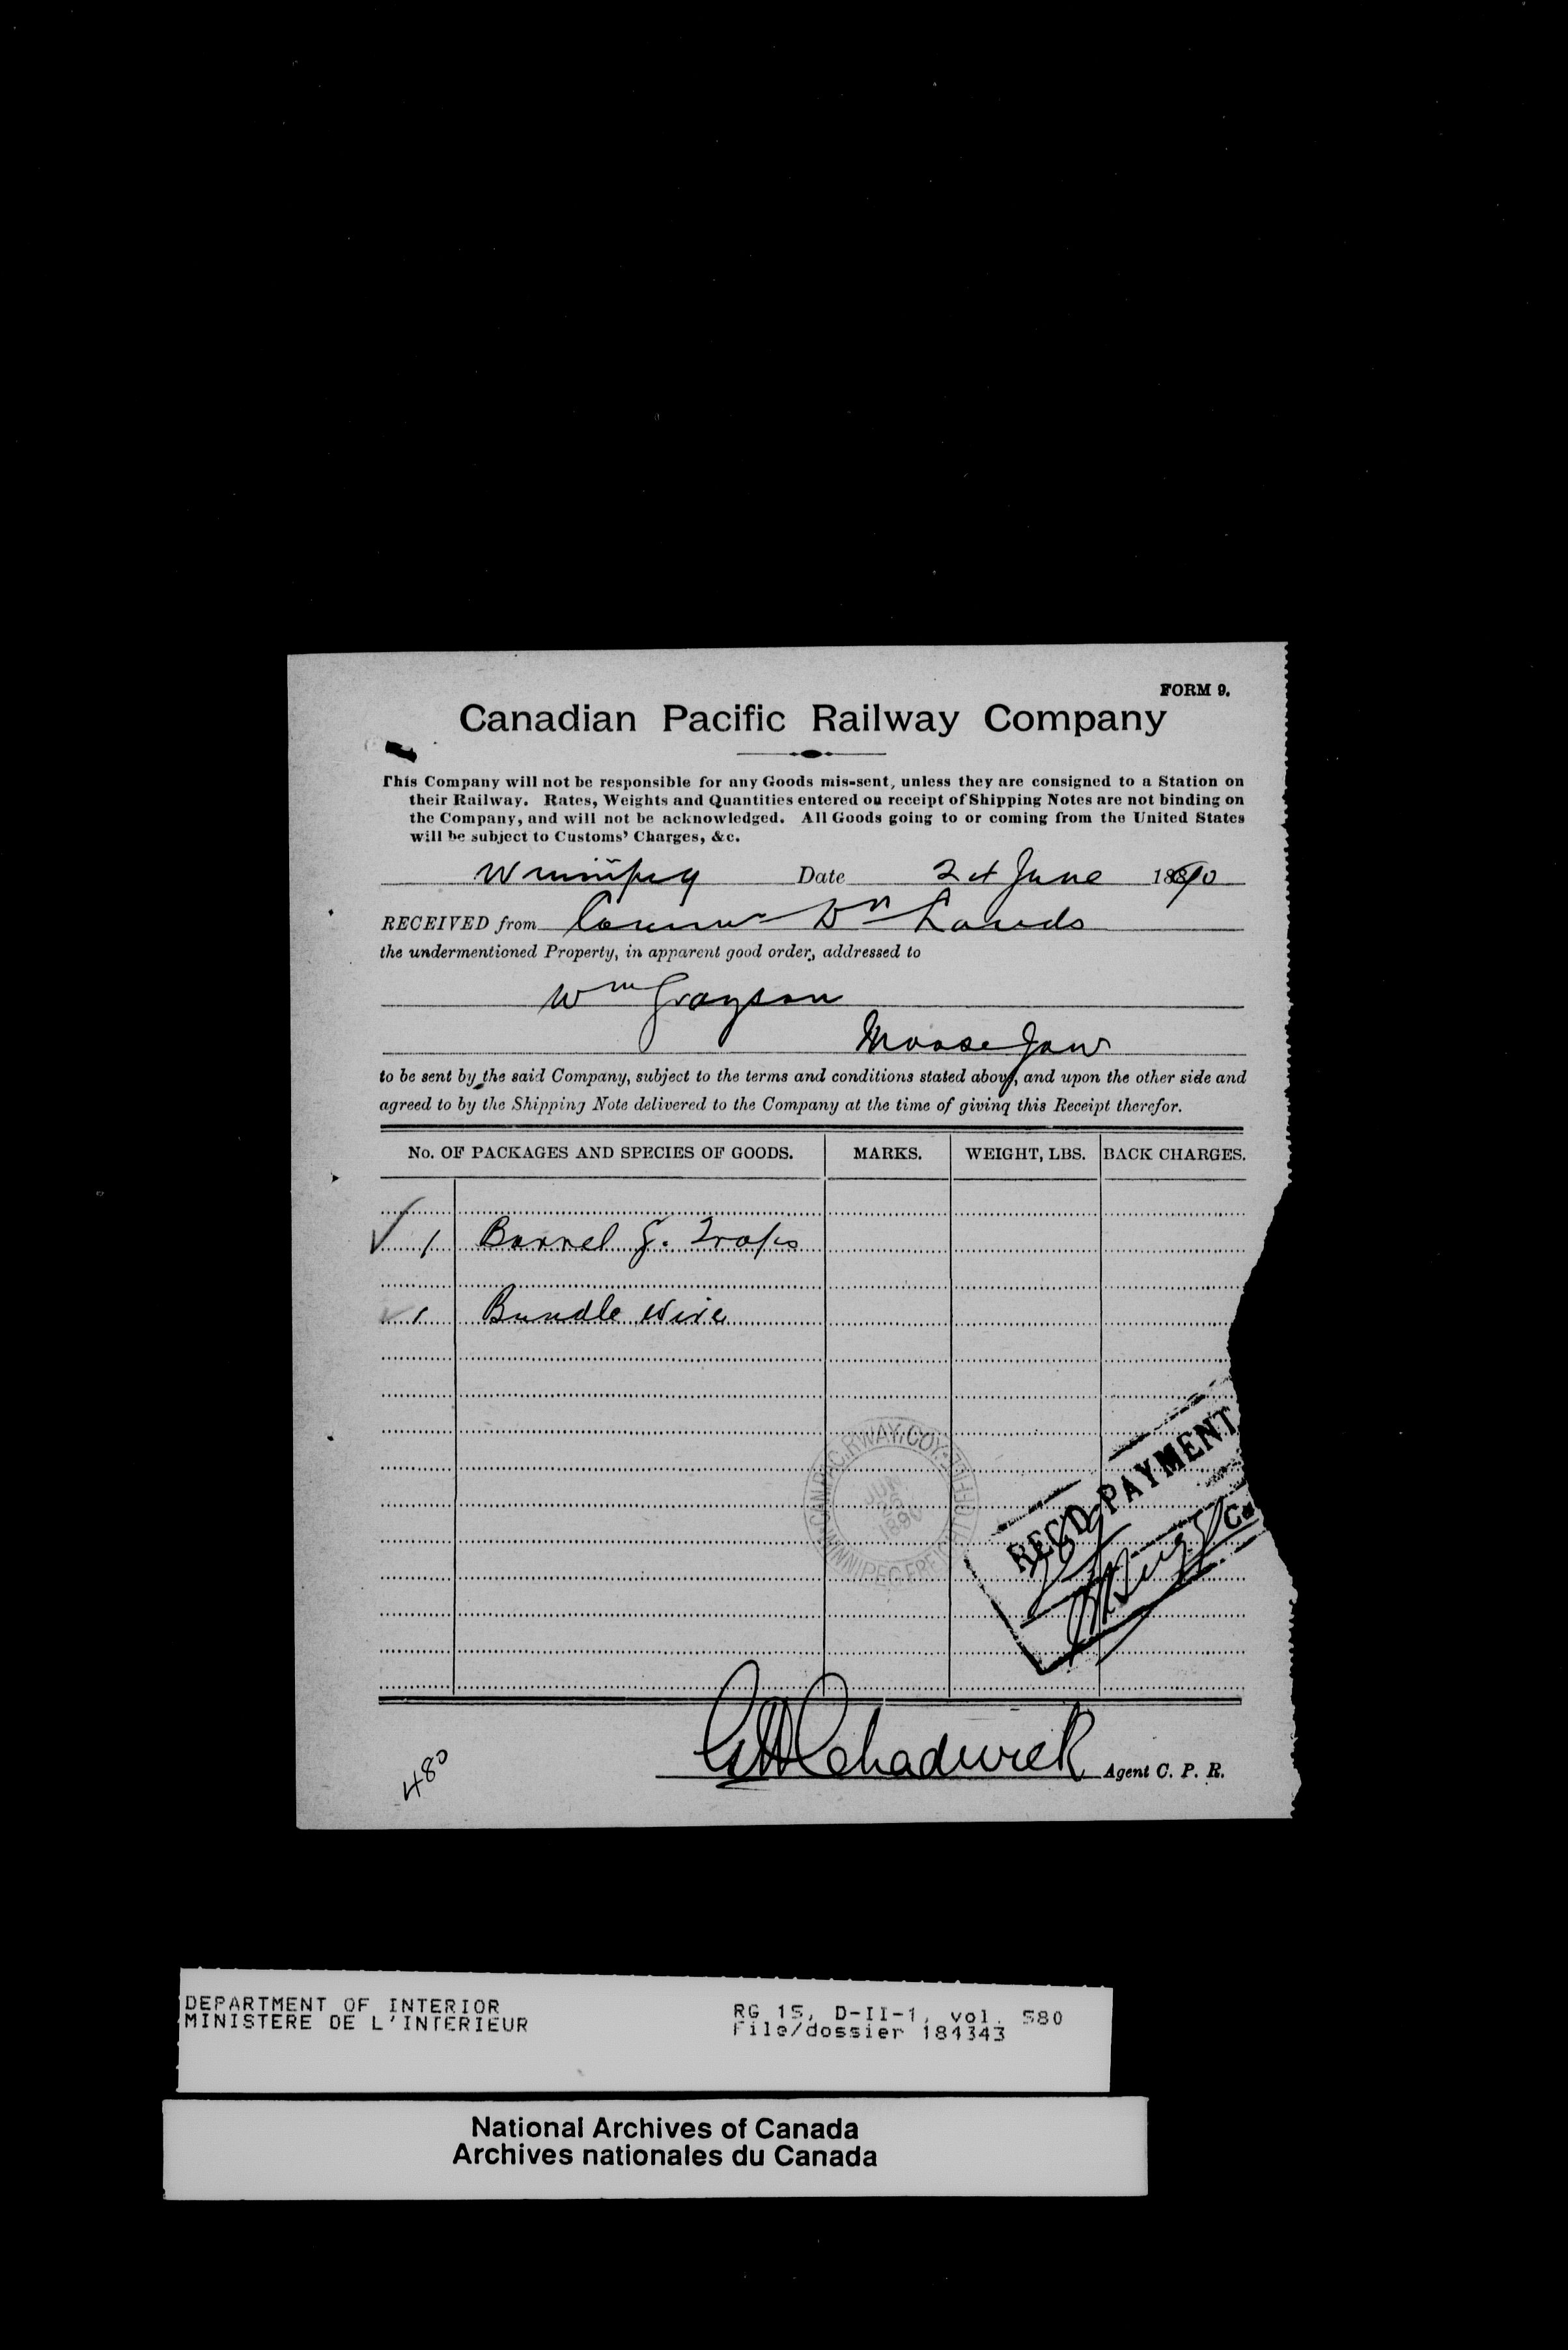 FORM 9.
Canadian Pacific Railway Company
This Company will not be responsible for any Goods mis-sent, unless they are consigned to a Station on
their Railway. Rates, Weights and Quantities entered on receipt of Shipping Notes are not binding on
the Company, and will not be acknowledged. All Goods going to or coming from the United States
will be subject to Customs' Charges, &c.
Winnipeg Date 24 June 1890
RECEIVED from Commr Dn Lands
the undermentioned Property, in apparent good order, addressed to
Wm Grayson
Moose Jaw
to be sent by the said Company, subject to the terms and conditions stated above, and upon the other side and
agreed to by the Shipping Note delivered to the Company at the time of giving this Receipt therefor.
No. OF PACKAGES AND SPECIES OF GOODS. MARKS. WEIGHT, LBS. BACK CHARGES.
✓ 1 Barrel G. Traps
✓ 1 Bundle Wire
CAN. PAC. RWAY. COY.
JUN
1890
WINNIPEG FREIGHT OFFICE
REC'D PAYMENT
Ca
Chadwick Agent C. P. R.
480
DEPARTMENT OF INTERIOR
MINISTERE DE L'INTERIEUR
RG 15, D-II-1, vol. 580
File/dossier 184343
National Archives of Canada
Archives nationales du Canada